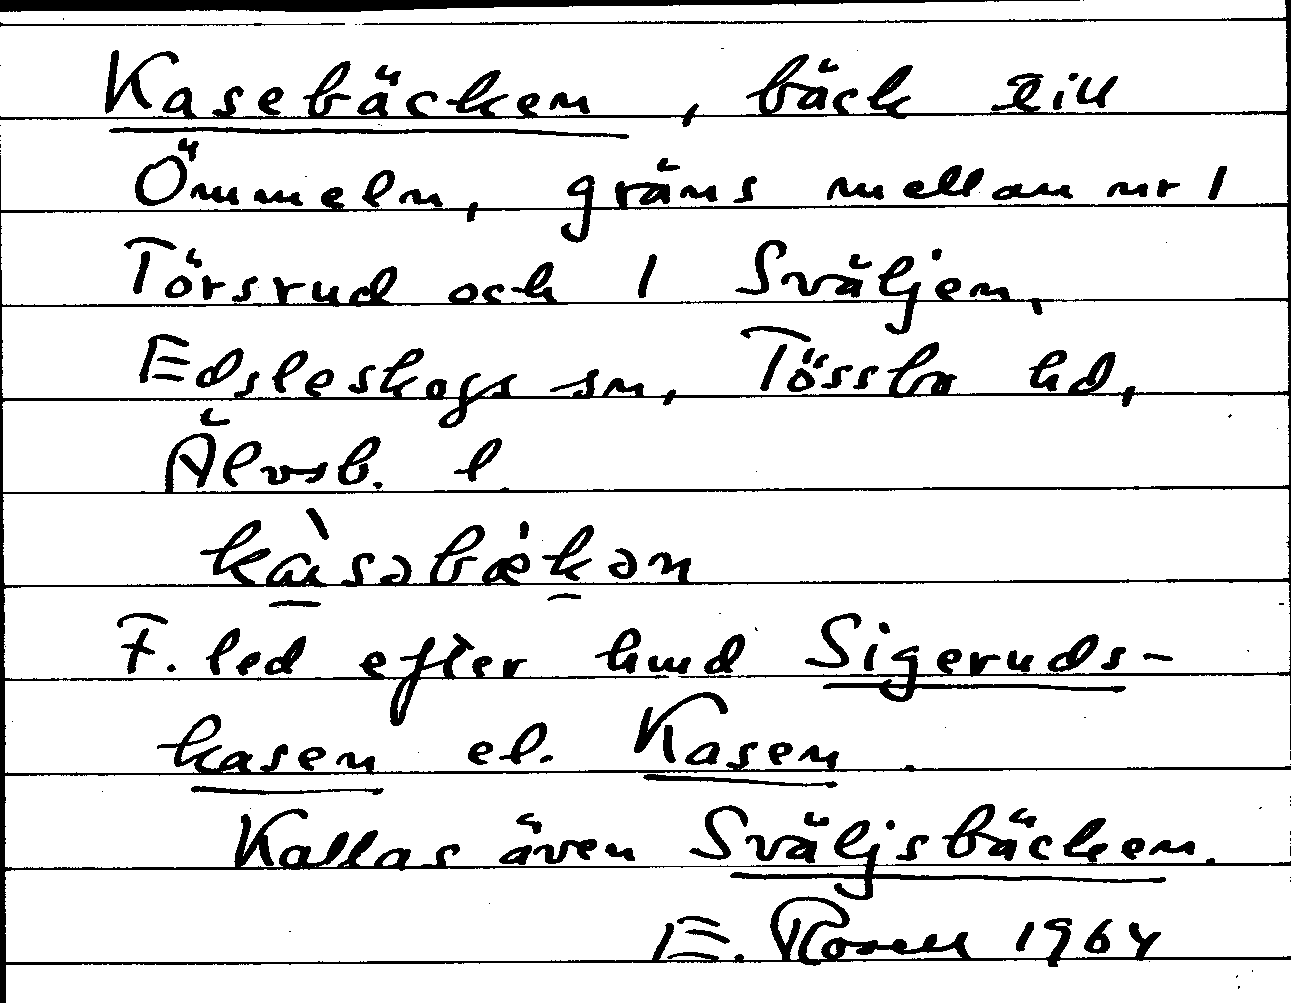 Kasebäcken, bäck till
Ömmeln, gräns mellan nr 1
Törsrud och 1 Sväljen,
Edsleskogs sn, Tössbo hd,
Älvsb. l
kàsəbæ̀kən
F. led efter hmd Sigeruds-
kasen el. Kasen.
Kallas även Sväljsbäcken.
E. Rosell 1964